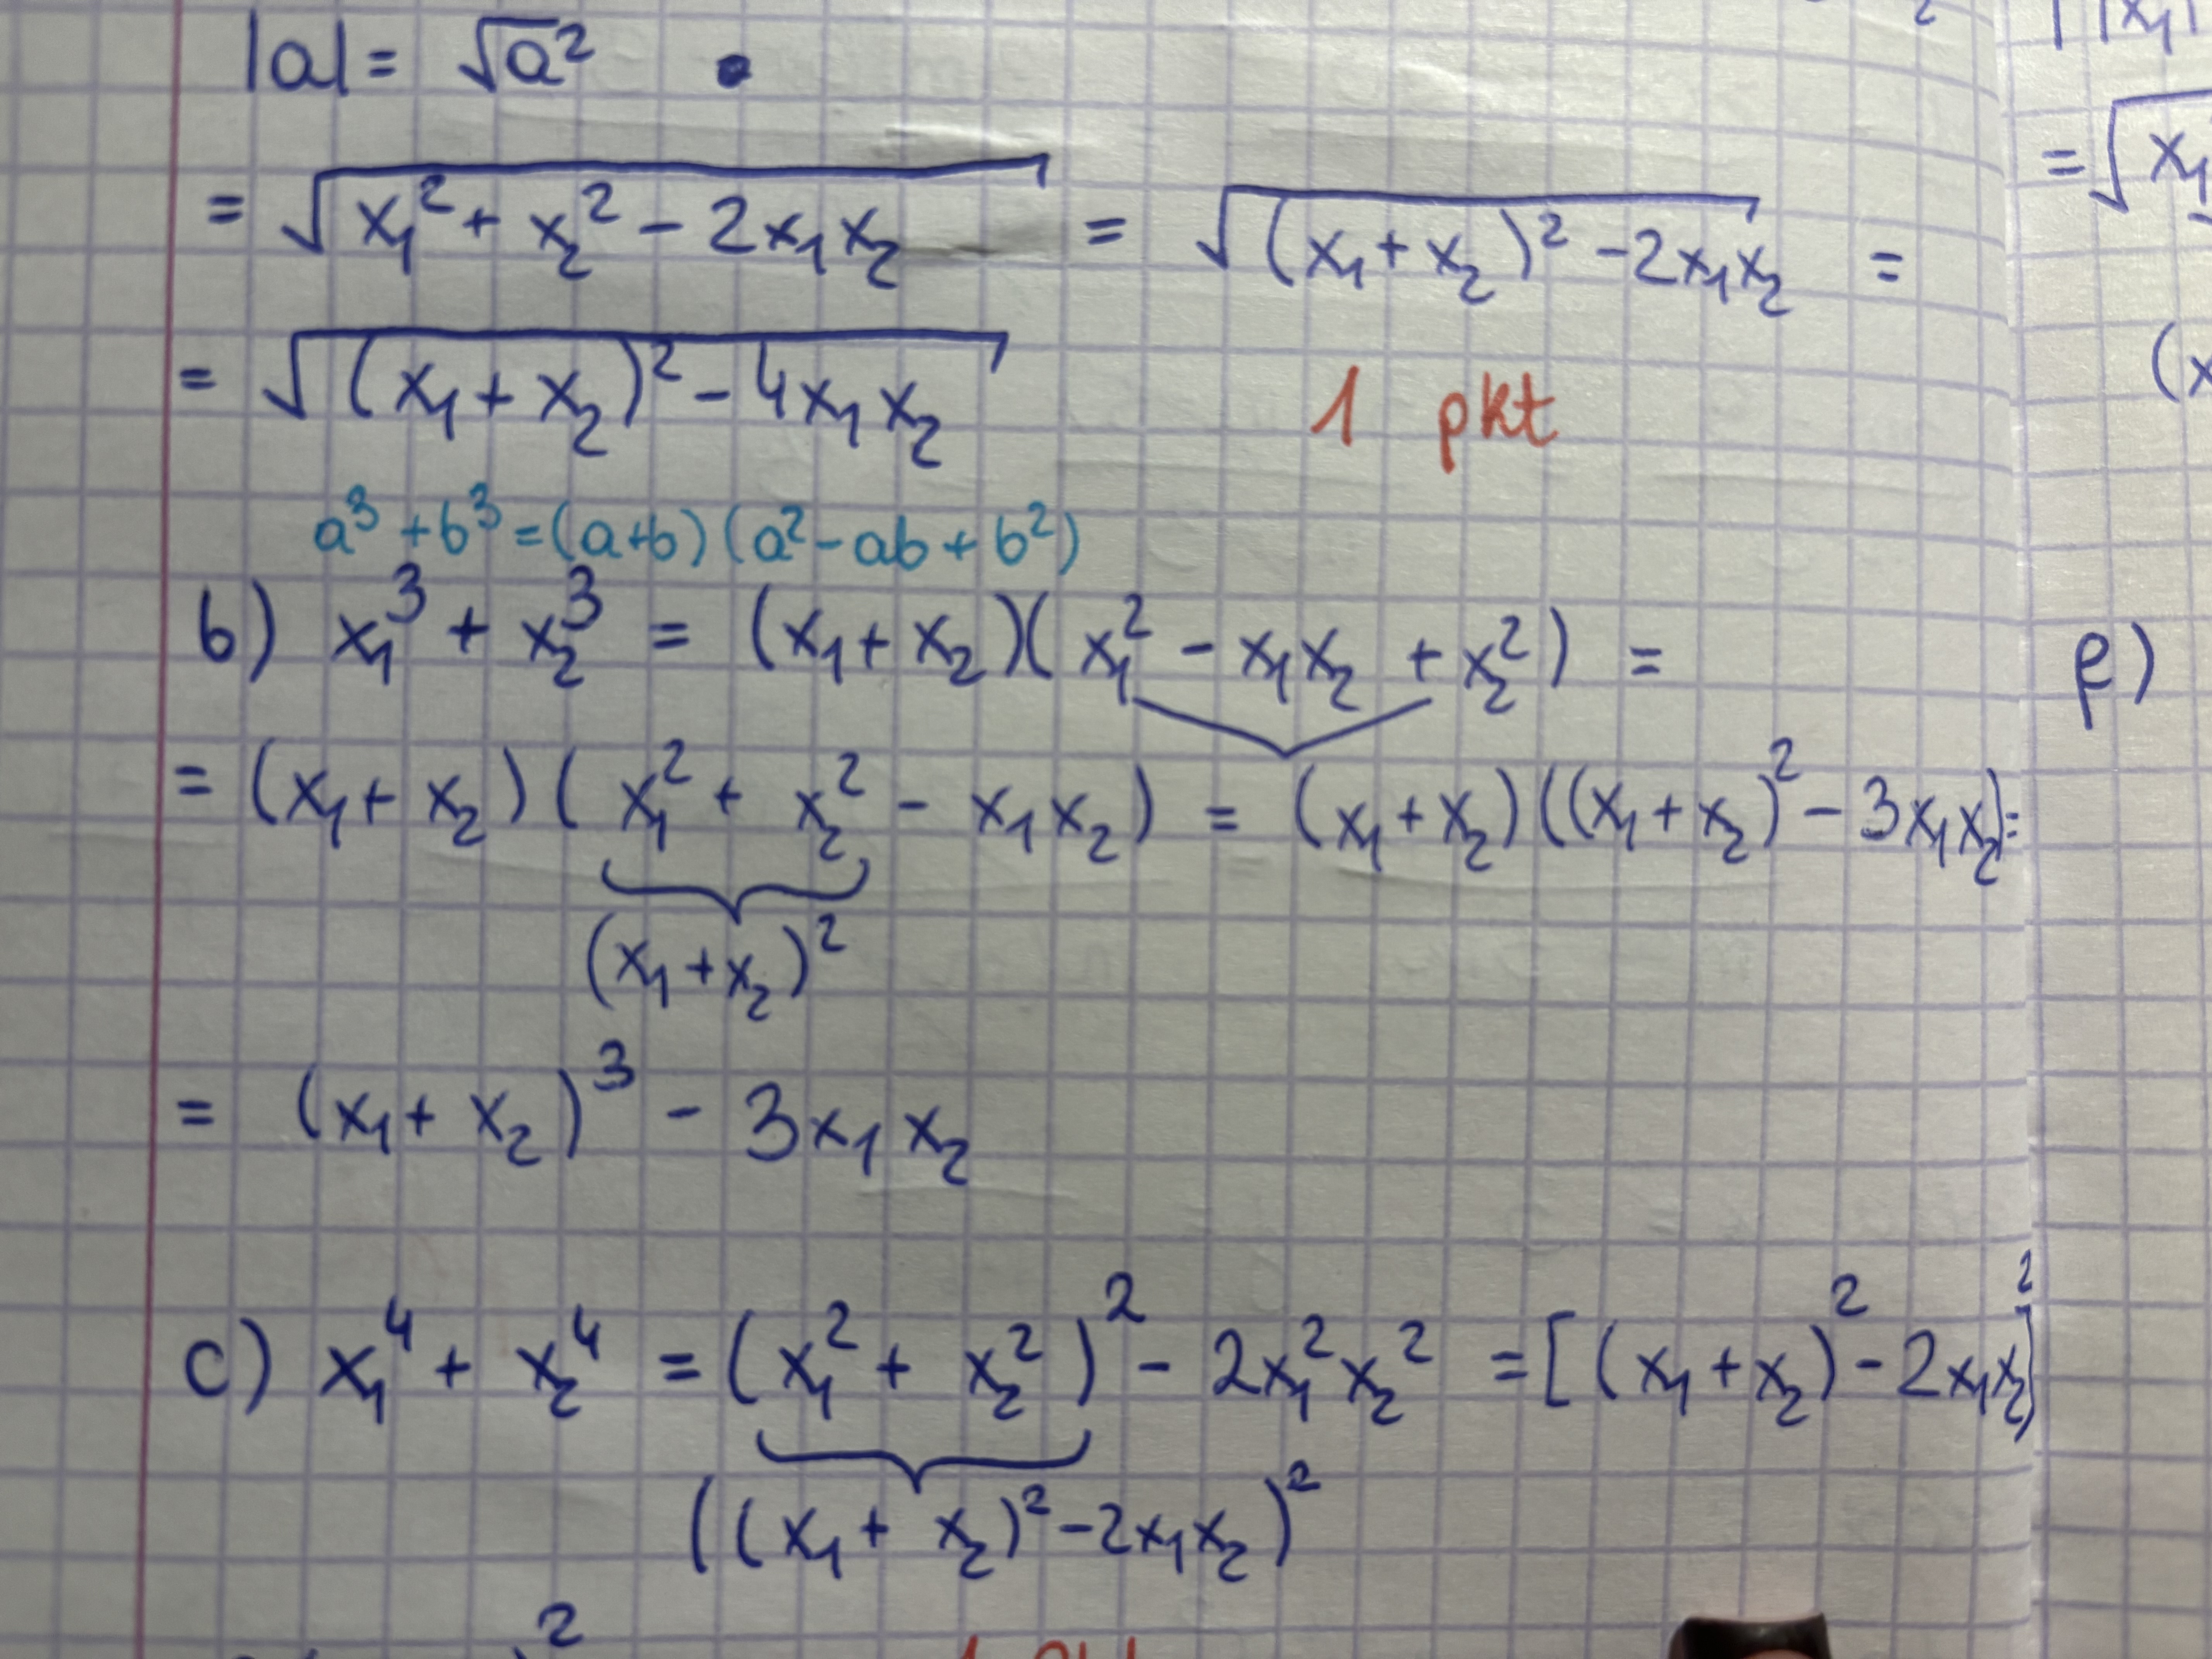 |a| = √a²
= √(x₁² + x₂² - 2x₁x₂) = √((x₁ + x₂)² - 2x₁x₂) =
= √((x₁ + x₂)² - 4x₁x₂)
1 pkt
a³ + b³ = (a+b)(a² - ab + b²)
b) x₁³ + x₂³ = (x₁ + x₂)(x₁² - x₁x₂ + x₂²) =
= (x₁ + x₂)(x₁² + x₂² - x₁x₂) = (x₁ + x₂)((x₁ + x₂)² - 3x₁x₂) =
(x₁ + x₂)²
= (x₁ + x₂)³ - 3x₁x₂
c) x₁⁴ + x₂⁴ = (x₁² + x₂²)² - 2x₁²x₂² = [(x₁ + x₂)² - 2x₁x₂]²
((x₁ + x₂)² - 2x₁x₂)²
2
|x₁|
= √x₁
(x
f)